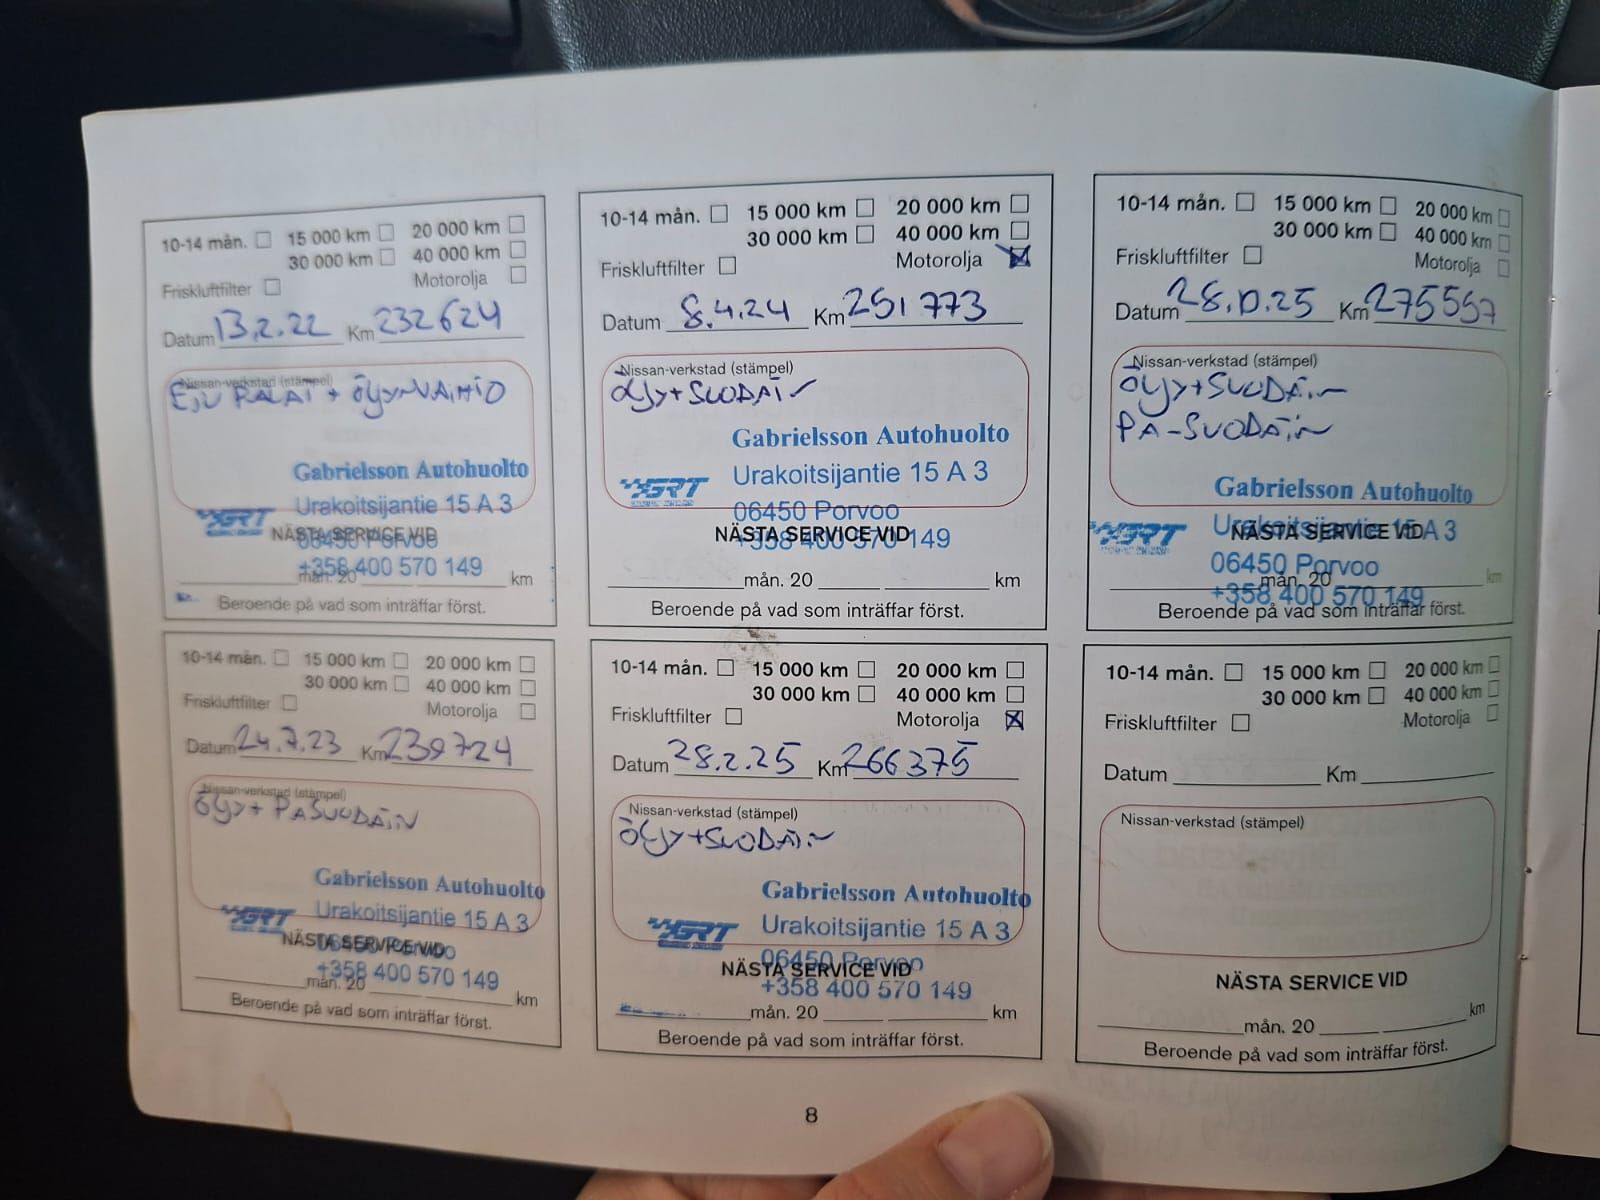 10-14 mån. 15 000 km 20 000 km
30 000 km 40 000 km
Friskluftfilter Motorolja
Datum 13.2.22 Km 232624
Nissan-verkstad (stämpel)
+ ÖLJYNVAIHTO
Gabrielsson Autohuolto
Urakoitsijantie 15 A 3
GRT
NÄSTA SERVICE VID
06450 Porvoo
+358 400 570 149
mån. 20 km
Beroende på vad som inträffar först.
10-14 mån. 15 000 km 20 000 km
30 000 km 40 000 km
Friskluftfilter Motorolja
Datum 24.7.23 Km 239724
Nissan-verkstad (stämpel)
ÖLJY + PASUODAIN
Gabrielsson Autohuolto
GRT Urakoitsijantie 15 A 3
NÄSTA SERVICE VID
06450 Porvoo
+358 400 570 149
mån. 20 km
Beroende på vad som inträffar först.
10-14 mån. 15 000 km 20 000 km
30 000 km 40 000 km
Friskluftfilter Motorolja
Datum 8.4.24 Km 251773
Nissan-verkstad (stämpel)
ÖLJY+SUODAIN
Gabrielsson Autohuolto
GRT Urakoitsijantie 15 A 3
06450 Porvoo
NÄSTA SERVICE VID
+358 400 570 149
mån. 20 km
Beroende på vad som inträffar först.
10-14 mån. 15 000 km 20 000 km
30 000 km 40 000 km
Friskluftfilter Motorolja
Datum 28.2.25 Km 266375
Nissan-verkstad (stämpel)
ÖLJY+SUODAIN
Gabrielsson Autohuolto
GRT Urakoitsijantie 15 A 3
06450 Porvoo
NÄSTA SERVICE VID
+358 400 570 149
mån. 20 km
Beroende på vad som inträffar först.
10-14 mån. 15 000 km 20 000 km
30 000 km 40 000 km
Friskluftfilter Motorolja
Datum Km 275557
Nissan-verkstad (stämpel)
ÖLJY+SUODAIN
PA-SUODAIN
Gabrielsson Autohuolto
GRT Urakoitsijantie 15 A 3
NÄSTA SERVICE VID
06450 Porvoo
mån. 20 km
+358 400 570 149
Beroende på vad som inträffar först.
10-14 mån. 15 000 km 20 000 km
30 000 km 40 000 km
Friskluftfilter Motorolja
Datum Km
Nissan-verkstad (stämpel)
NÄSTA SERVICE VID
mån. 20 km
Beroende på vad som inträffar först.
8